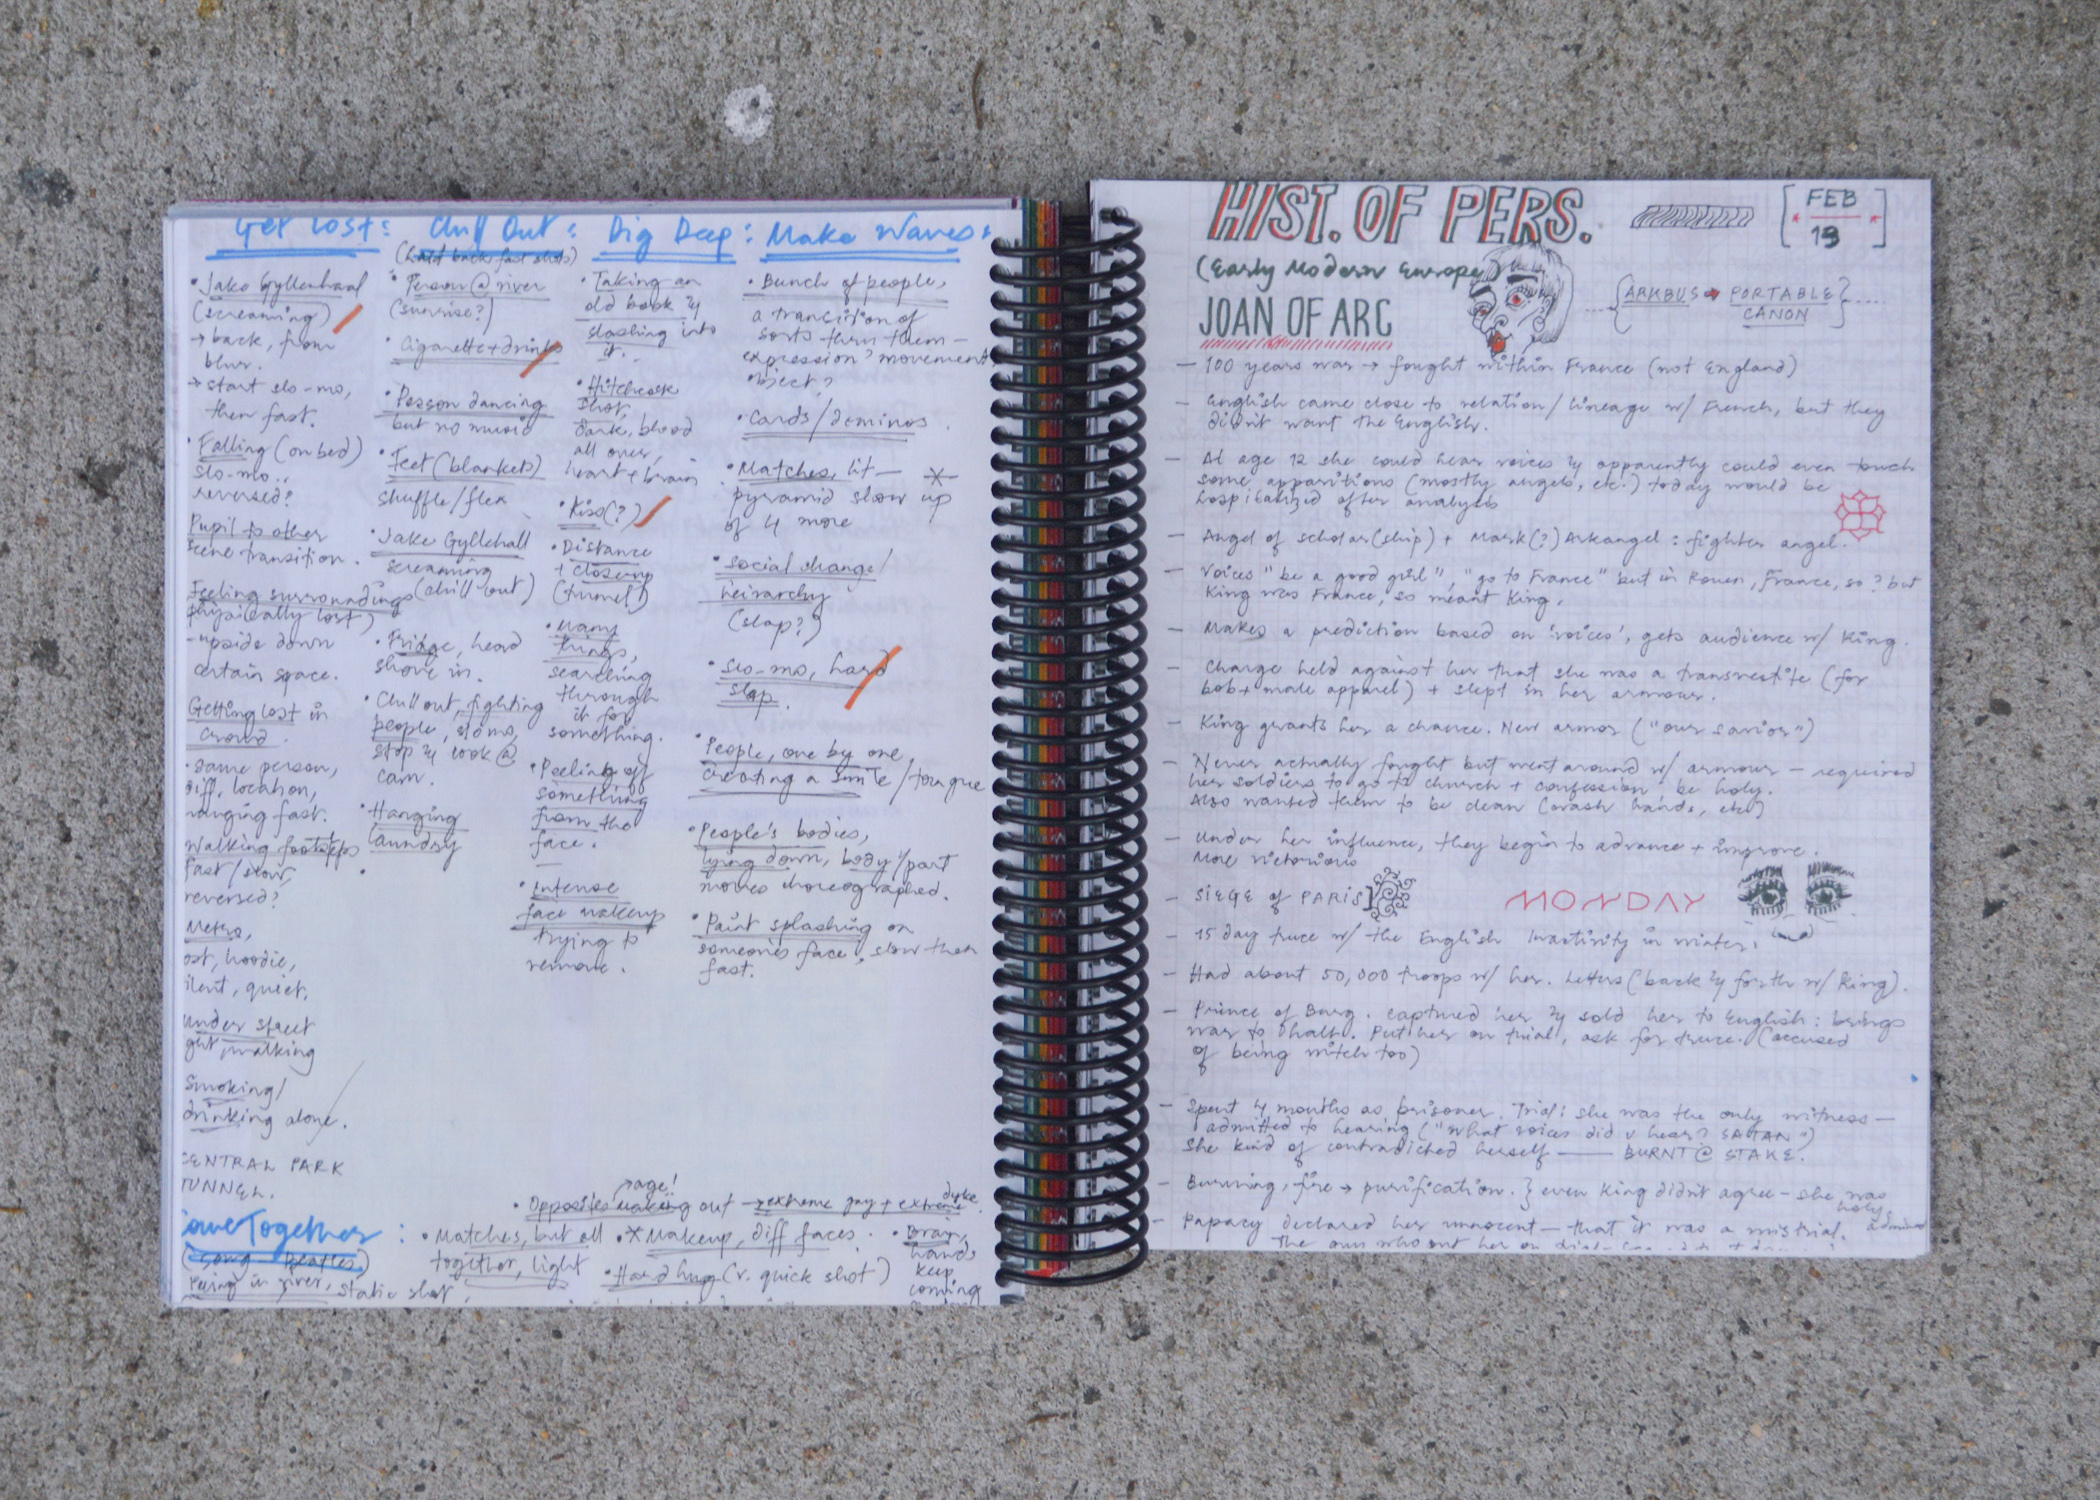 Get Lost:
• Jake Gyllenhaal
(screaming)
→ back, from
blur.
→ start slo-mo,
then fast.
• Falling (on bed)
slo-mo..
reversed?
Pupil to other
scene transition.
Feeling surroundings
physically lost)
- upside down
certain space.
Getting lost in
crowd.
• same person,
diff, location,
fast.
Walking footsteps
fast/slow,
reversed?
Metro,
hoodie,
quiet,
under street
walking
Smoking/
drinking alone.
CENTRAL PARK
TUNNEL.
Chill Out:
(laid back fast shots)
• Person @ river
(sunrise?)
• Cigarette + drinks
• Person dancing
but no music
• Feet (blankets)
shuffle/flex
• Jake Gyllehall
screaming
(chill out)
• Fridge, head
shove in.
• Chill out, fighting
people, slo mo,
stop & look @
cam.
• Hanging
laundry
Dig Deep:
• Taking an
old book &
slashing into
it.
• Hitchcock
shot,
dark, blood
all over,
heart + brain
• Kiss (?)
• Distance
+ closeup
(tunnel)
• Many
things,
searching
through
it for
something.
• Peeling off
something
from the
face.
• intense
face makeup
trying to
remove.
Make Waves:
• Bunch of people,
a transition of
sorts thru them -
expression? movement
object?
• Cards/dominos.
• Matches, lit —
pyramid slow up
of 4 more
• social change/
heirarchy
(slap?)
• slo-mo, hard
slap.
• People, one by one,
creating a smile/tongue
• People's bodies,
lying down, body/part
moves choreographed.
• Paint splashing on
someones face, slow then
fast.
Come Together:
(song Beatles)
in river, static shot.
age!
• Opposites making out → extreme gay + extreme dyke.
• Matches, but all
together, light
* Makeup, diff faces.
• Hard hug (v. quick shot)
• Brain,
hands
keep
coming
HIST. OF PERS.
[FEB
19]
(Early Modern Europe)
JOAN OF ARC
{ARKBUS → PORTABLE
CANON}
— 100 years war → fought within France (not England)
— English came close to relation/lineage w/ French, but they
didn't want the English.
— At age 12 she could hear voices & apparently could even touch
some apparitions (mostly angels, etc.) today would be
hospitalized after analysis
— Angel of scholar(ship) + Mark(?) Arkangel: fighter angel.
— Voices "be a good girl", "go to France" but in Rouen, France, so? but
King was France, so meant King.
— Makes a prediction based on 'voices', gets audience w/ King.
— Charge held against her that she was a transvestite (for
bob + male apparel) + slept in her armour.
— King grants her a chance. New armor ("our savior")
— Never actually fought but went around w/ armour — required
her soldiers to go to church + confession - be holy.
Also wanted them to be clean (wash hands, etc)
— Under her influence, they begin to advance + improve.
More victorious
— SIEGE of PARIS]
MONDAY
— 15 day truce w/ the English Inactivity in winter.
— Had about 50,000 troops w/ her. Letters (back & forth w/ King).
— Prince of Burg. captured her & sold her to English: brings
war to halt. Put her on trial, ask for truce. (accused
of being witch too)
— Spent 4 months as prisoner. Trial: she was the only witness —
admitted to hearing ("what voices did u hear? SATAN")
She kind of contradicted herself —— BURNT @ STAKE.
— Burning, fire → purification. } even King didn't agree - she was
holy.
— Papacy declared her innocent — that it was a mistrial.
The